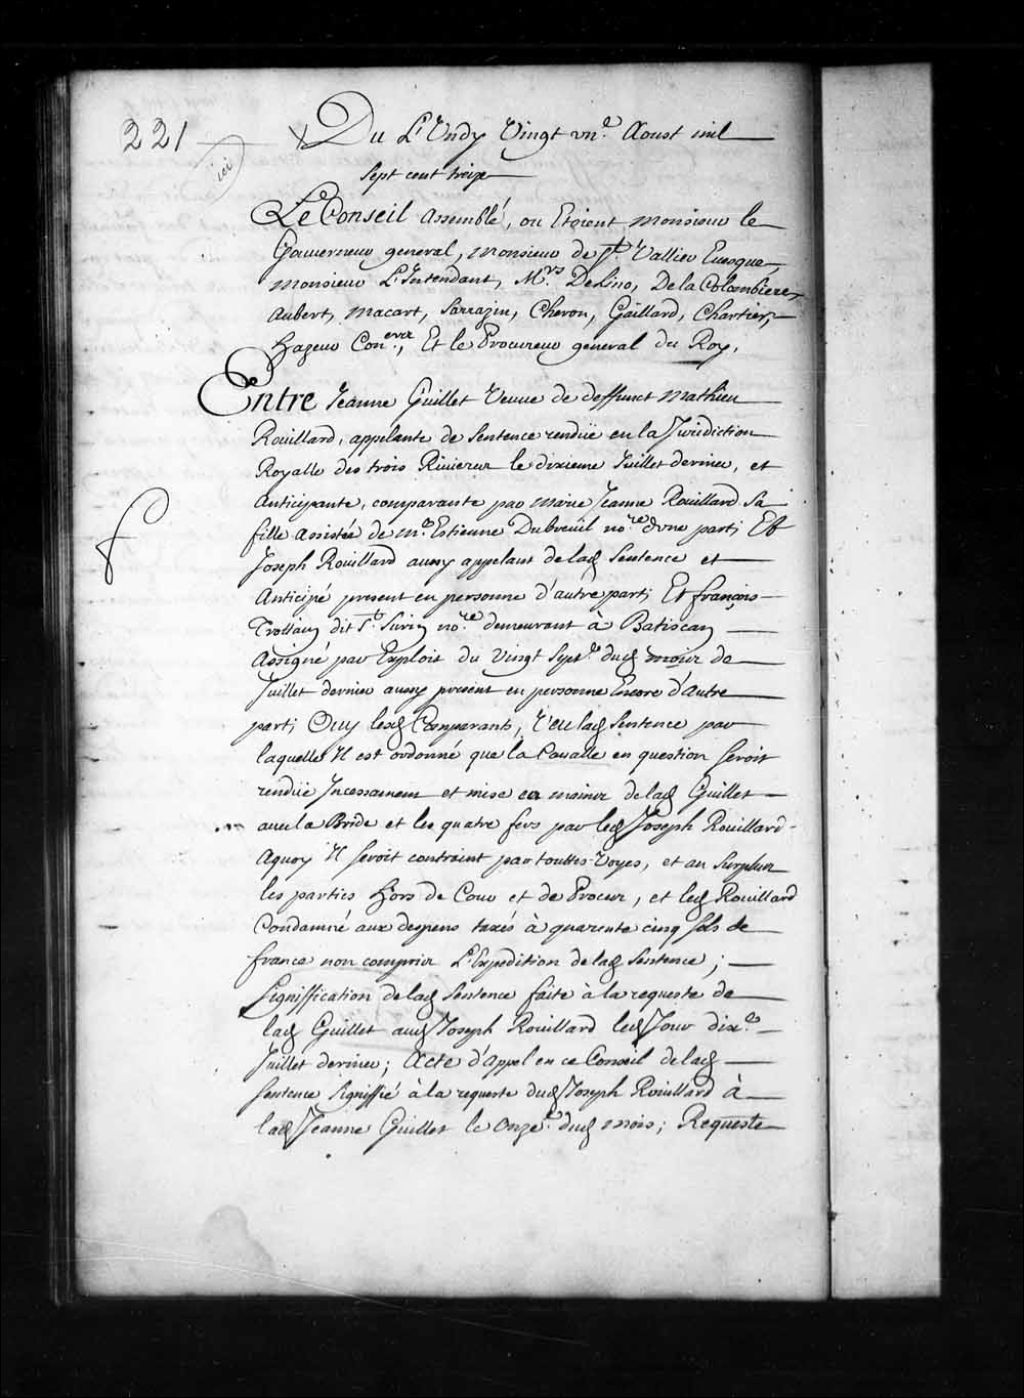 221
ici
Du L'Undy Vingt vne. Aoust mil
sept cent treize
Le Conseil assemblé, ou Etoient monsieur le
Gouverneur general, monsieur de St. Vallier Euesque,
monsieur L'Intendant, Mrs. DeLino, De la Colombiere,
aubert, macart, sarrazin, Cheron, Gaillard, Chartier,
hazeur Coners., Et le Procureur general du Roy,
Entre Jeanne Guillet veuue de deffunct mathieu
Rouillard, appelante de sentence rendüe en la Jurisdiction
Royalle des trois Riuieres le dixieme Juillet dernier, et
anticipante, comparante par marie Jeanne Rouillard sa
fille assistée de me. Estienne Dubreuil nore. d'vne part; Et
Joseph Rouillard aussy appelant de lad. sentence et
anticipé present en personne d'autre part; Et françois
Trottain dit St. Surin nore. demeurant à Batiscan
assigné par Exploit du vingt septe. dud. mois de
Juillet dernier aussy present en personne Encore d'autre
part; Ouy lesd. Comparants, Veu lad. sentence par
laquelle Il est ordonné que la Cavalle en question seroit
rendüe Incessament et mise es mains de lad. Guillet
auec la Bride et les quatre fers par led. Joseph Rouillard
aquoy Il seroit contraint par touttes voyes, et au surplus
les parties hors de Cour et de Procez, et led. Rouillard
Condamné aux despens taxés à quarente cinq sols de
france non compris L'Expedition de lad. sentence;
signiffication de lad. sentence faite à la requeste de
lad. Guillet aud. Joseph Rouillard led. Jour dixe.
Juillet dernier; acte d'appel en ce Conseil de lad.
sentence signiffié à la requeste dud. Joseph Rouillard à
lad. Jeanne Guillet le onze. dud. mois; Requeste